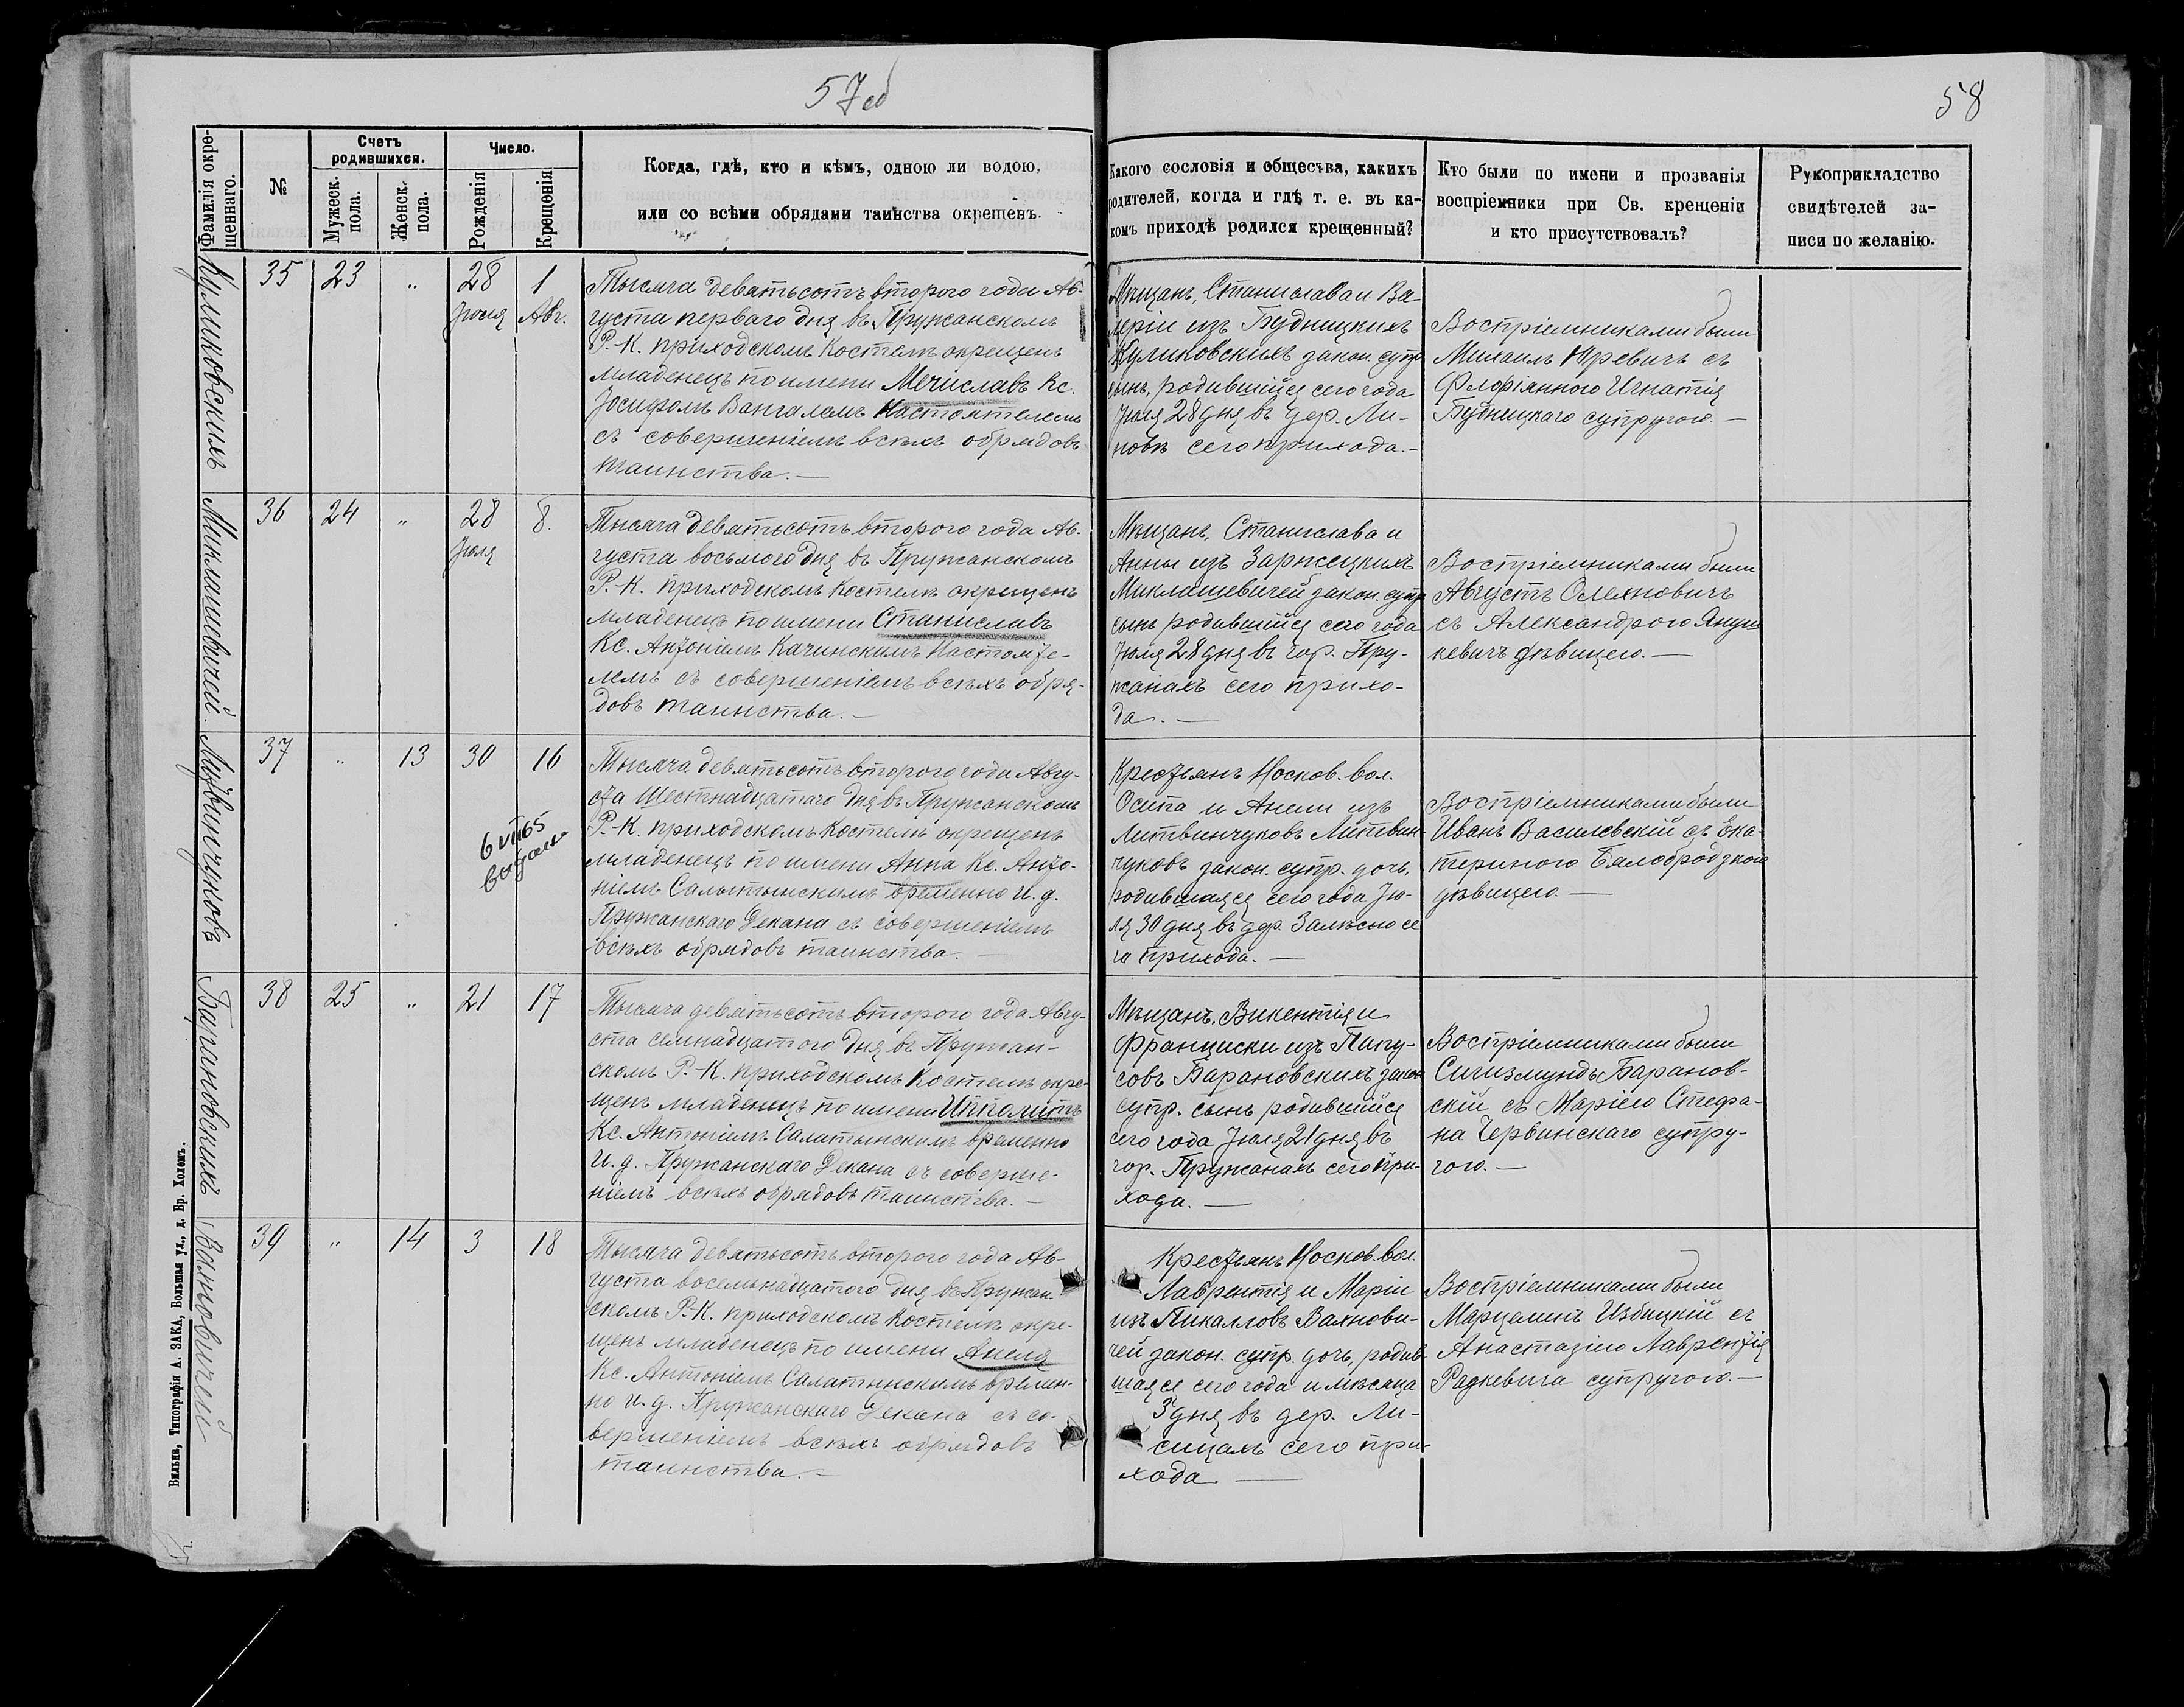 57об
58
Фамилія окре-
щеннаго.
№
Счетъ
родившихся.
Мужеск.
пола.
Женск.
пола.
Число.
Рожденія
Крещенія
Когда, гдѣ, кто и кѣмъ, одною ли водою,
или со всѣми обрядами таинства окрещенъ.
Какого сословія и общества, какихъ
родителей, когда и гдѣ т. е. въ ка-
комъ приходѣ родился крещенный?
Кто были по имени и прозванія
воспріемники при Св. крещеніи
и кто присутствовалъ?
Рукоприкладство
свидѣтелей за-
писи по желанію.
Куликовскихъ
35
23
„
28
Іюля
1
Авг.
Тысяча девятьсотъ второго года Ав-
густа перваго дня въ Пружанскомъ
Р.-К. приходскомъ Костелѣ окрещенъ
младенецъ по имени Мечиславъ Кс.
Іосифомъ Вангаломъ Настоятелемъ
съ совершеніемъ всѣхъ обрядовъ
таинства. —
Мѣщанъ, Станислава и Ва-
леріи изъ Будницкихъ
Куликовскихъ закон. супр.
сынъ, родившійся сего года
Іюля 28 дня въ дер. Ли-
новѣ сего прихода. -
Воспріемниками были
Михаилъ Юревичъ съ
Игнатія
Будницкаго супругою. —
Миклашевичей.
36
24
„
28
Іюля
8.
Тысяча девятьсотъ второго года Ав-
густа восьмого дня въ Пружанскомъ
Р.-К. приходскомъ Костелѣ окрещенъ
младенецъ по имени Станиславъ
Кс. Антоніемъ Качинскимъ Настояте-
лемъ съ совершеніемъ всѣхъ обря-
довъ таинства. —
Мѣщанъ, Станислава и
Анны изъ Заржецкихъ
Миклашевичей закон. супр.
сынъ родившійся сего года
Іюля 28 дня въ гор. Пру-
жанахъ сего прихо-
да. —
Воспріемниками были
Августъ Олехновичъ
съ Александрою Януш-
кевичъ дѣвицею. —
Литвинчуковъ
37
„
13
30
16
6 VII 65
выдано
Тысяча девятьсотъ второго года Авгу-
ста Шестнадцатаго дня въ Пружанскомъ
Р.-К. приходскомъ Костелѣ окрещенъ
младенецъ по имени Анна Кс. Анто-
ніемъ Салатынскимъ временно и. д.
Пружанскаго Декана съ совершеніемъ
всѣхъ обрядовъ таинства. —
Крестьянъ Носков. вол.
Осипа и Анели изъ
Литвинчуковъ Литвин-
чуковъ закон. супр. дочь,
родившаяся сего года Ію-
ля 30 дня въ дер. Залѣсью се
го прихода. —
Воспріемниками были
Иванъ Василевскій съ Ека-
териною Бялобродзкою
дѣвицею. —
Барановскихъ
38
25
„
21
17
Тысяча девятьсотъ второго года Авгу-
ста семнадцатого дня въ Пружан-
скомъ Р.-К. приходскомъ Костелѣ окре-
щенъ младенецъ по имени Ипполитъ
Кс. Антоніемъ Салатынскимъ временно
и. д. Пружанскаго Декана съ соверше-
ніемъ всѣхъ обрядовъ таинства. —
Мѣщанъ, Викентія и
Франциски изъ Папу-
совъ Барановскихъ закон
супр. сынъ родившійся
сего года Іюля 21 дня въ
гор. Пружанахъ сего при-
хода. —
Воспріемниками были
Сигизмундъ Баранов-
скій съ Маріею Стефа-
на Червинскаго супру-
гою. —
Вахновичей
39
„
14
3
18
Тысяча девятьсотъ второго года Ав-
густа восемьнадцатого дня въ Пружан
скомъ Р.-К. приходскомъ Костелѣ окре-
щенъ младенецъ по имени Анеля
Кс. Антоніемъ Салатынскимъ времен-
но и. д. Пружанскаго Декана съ со-
вершеніемъ всѣхъ обрядовъ
таинства. —
Крестьянъ Носков. вол.
Лаврентія и Маріи
изъ Пикалловъ Вахнови-
чей закон. супр. дочь, родив-
шаяся сего года и мѣсяца
3 дня въ дер. Ли-
сицахъ сего при-
хода. —
Воспріемниками были
Марцелинъ Избицкій съ
Анастазіею Лаврентія
Радкевича супругою. —
Вильна, Типографія А. ЗАКА, Большая ул., д. Бр. Холемъ.